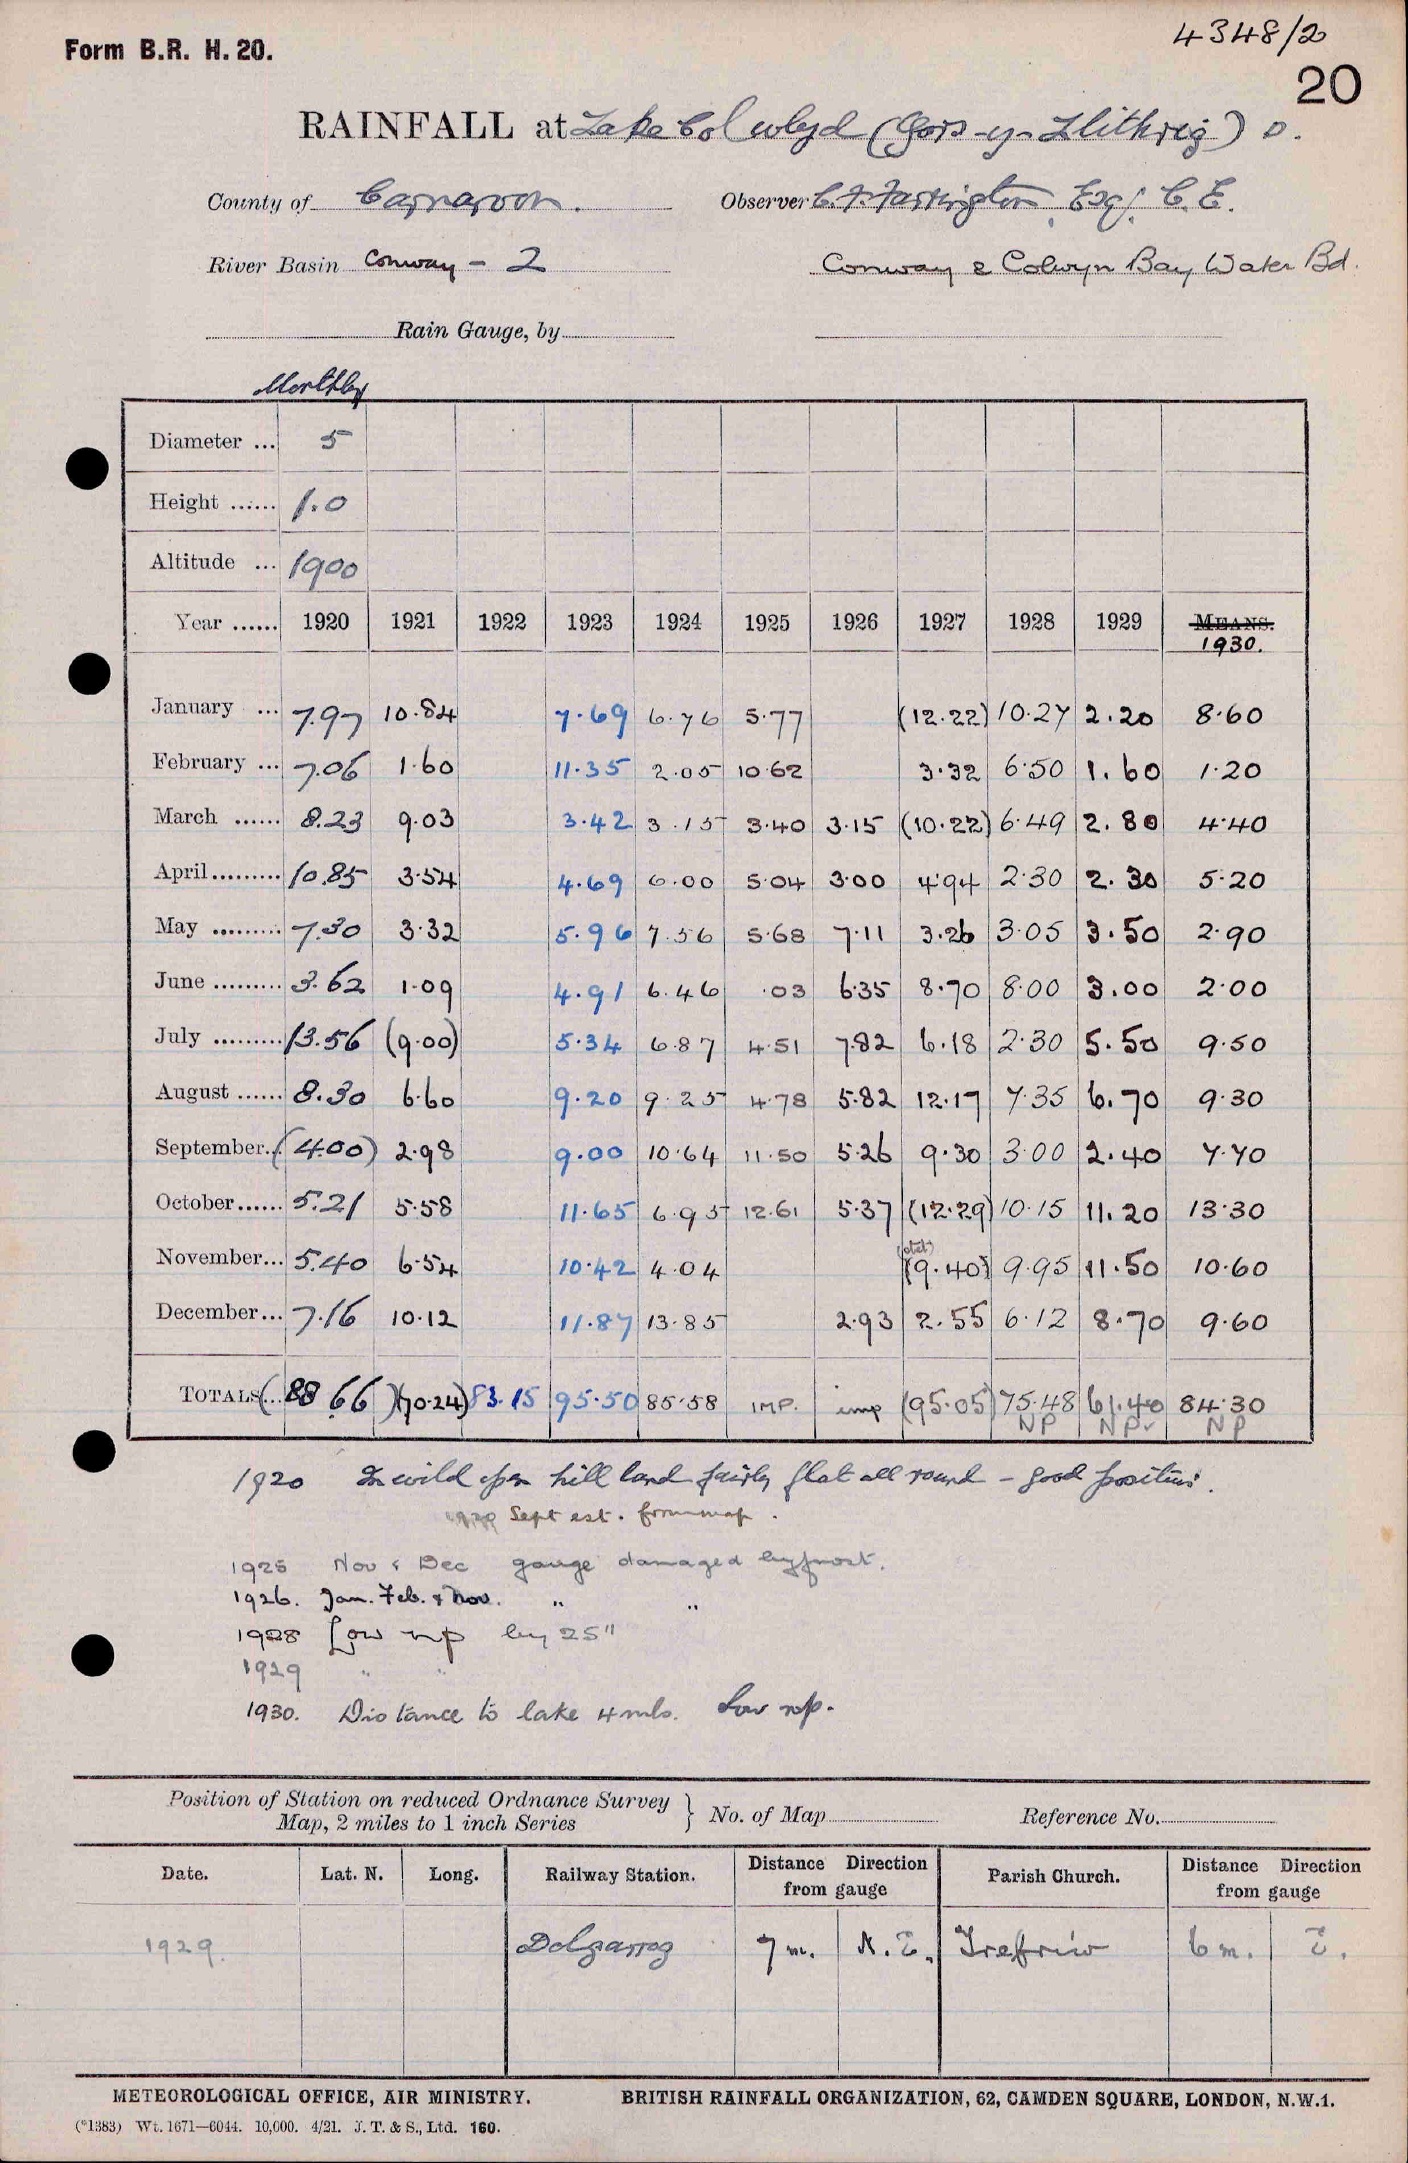 Form B.R. H. 20.
4348/2
20
RAINFALL at Lake Colwlyd (Gors-y-Llithrig) D.
County of Carnarvon. Observer C. F. Farrington, Esq. C.E.
River Basin Conway - 2 Conway & Colwyn Bay Water Bd.
Rain Gauge, by
Monthly
Diameter ... 5
Height ...... 1.0
Altitude ... 1900
Year ...... 1920 1921 1922 1923 1924 1925 1926 1927 1928 1929 MEANS.
1930.
January ... 7.97 10.84 7.69 6.76 5.77 (12.22) 10.27 2.20 8.60
February ... 7.06 1.60 11.35 2.05 10.62 3.32 6.50 1.60 1.20
March ...... 8.23 9.03 3.42 3.15 3.40 3.15 (10.22) 6.49 2.80 4.40
April......... 10.85 3.54 4.69 6.00 5.04 3.00 4.94 2.30 2.30 5.20
May ......... 7.30 3.32 5.96 7.56 5.68 7.11 3.26 3.05 3.50 2.90
June ......... 3.62 1.09 4.91 6.46 .03 6.35 8.70 8.00 3.00 2.00
July ......... 13.56 (9.00) 5.34 6.87 4.51 7.82 6.18 2.30 5.50 9.50
August ...... 8.30 6.60 9.20 9.25 4.78 5.82 12.17 7.35 6.70 9.30
September.. (4.00) 2.98 9.00 10.64 11.50 5.26 9.30 3.00 2.40 7.70
October...... 5.21 5.58 11.65 6.95 12.61 5.37 (12.29) 10.15 11.20 13.30
(stet)
November... 5.40 6.54 10.42 4.04 (9.40) 9.95 11.50 10.60
December... 7.16 10.12 11.87 13.85 2.93 2.55 6.12 8.70 9.60
TOTALS... (88.66) (70.24) 83.15 95.50 85.58 IMP. imp (95.05) 75.48 61.40 84.30
NP NP NP
1920 In wild open hill land fairly flat all round - good position.
1920 Sept est. from map.
1925 Nov & Dec gauge damaged by frost.
1926. Jan. Feb. & Nov. " "
1928 Low np by 25"
1929 " "
1930. Distance to lake 4 mls. Low np.
Position of Station on reduced Ordnance Survey
Map, 2 miles to 1 inch Series } No. of Map Reference No.
Date. Lat. N. Long. Railway Station. Distance Direction from gauge Parish Church. Distance Direction from gauge
1929. Dolgarrog 7 m. N.E. Trefriw 6 m. E.
METEOROLOGICAL OFFICE, AIR MINISTRY. BRITISH RAINFALL ORGANIZATION, 62, CAMDEN SQUARE, LONDON, N.W.1.
(*1383) Wt. 1671—6044. 10,000. 4/21. J. T. & S., Ltd. 160.